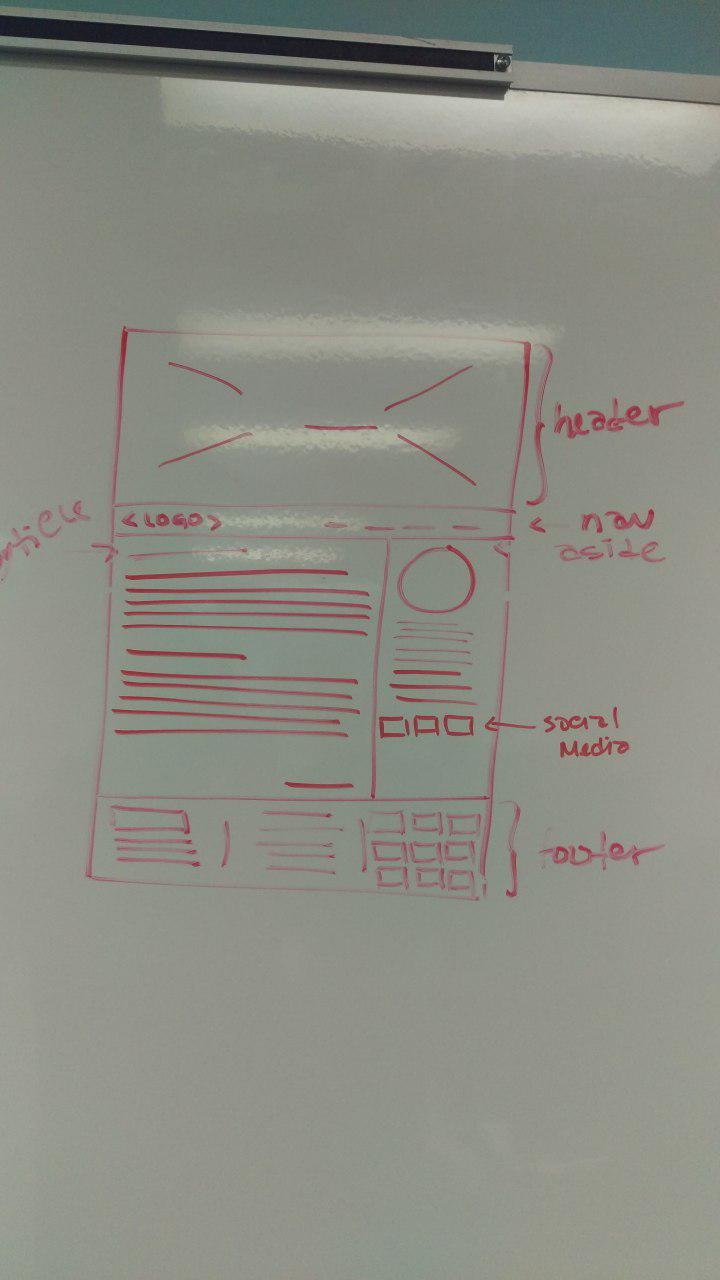 header
<LOGO>
nav
article
aside
social
Media
footer